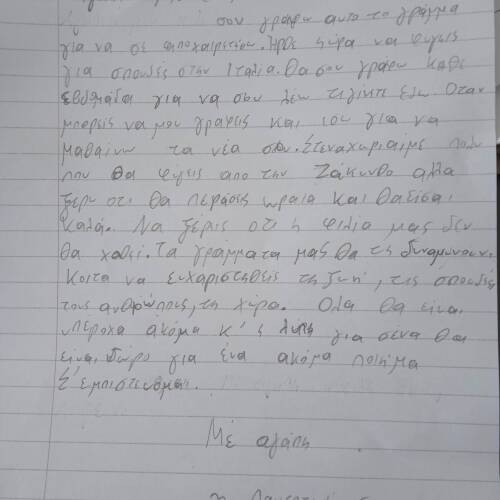 σου γράφω αυτο το γράμμα
για να σε αποχαιρετίσω. Ηρθε η ώρα να φυγεις
για σπουδές στην Ιταλία. Θα σου γράφω κάθε
εβδομάδα για να σου λέω τι γίνετε εδω. Οταν
μπορείς να μου γράφεις και εσυ για να
μαθαίνω τα νέα σου. Στεναχωριαμε πολυ
που θα φυγεις απο την Ζάκυνθο αλλα
ξερω οτι θα περάσεις ωραια και θα εισαι
καλά. Να ξέρεις οτι η φιλία μας δεν
θα χαθει. Τα γράμματα μας θα τη δυναμωνουν.
Κοιτα να ευχαριστηθεις τη ζωή, τις σπουδες
τους ανθρώπους, τη χώρα. Ολα θα ειναι
υπέροχα ακόμα κ' η λύπη για σένα θα
ειναι δώρο για ένα ακόμα ποιημα
Σ' εμπιστευομαι.
Με αγάπη